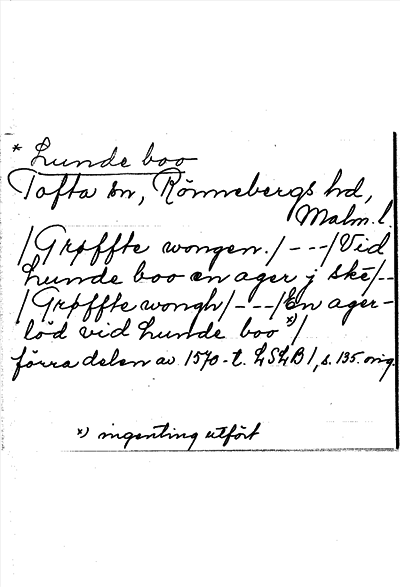 * Lunde boo
Tofta sn, Rönnebergs hd,
Malm. l.
/Grøffte wongen./ - - -/Vid
Lunde boo en ager j ske/--
/Grøffte wongh/ - - -/En ager-
löd vid Lunde boo *)/
förra delen av 1570-t. LSLB1, s. 135. orig.
*) ingenting utfört